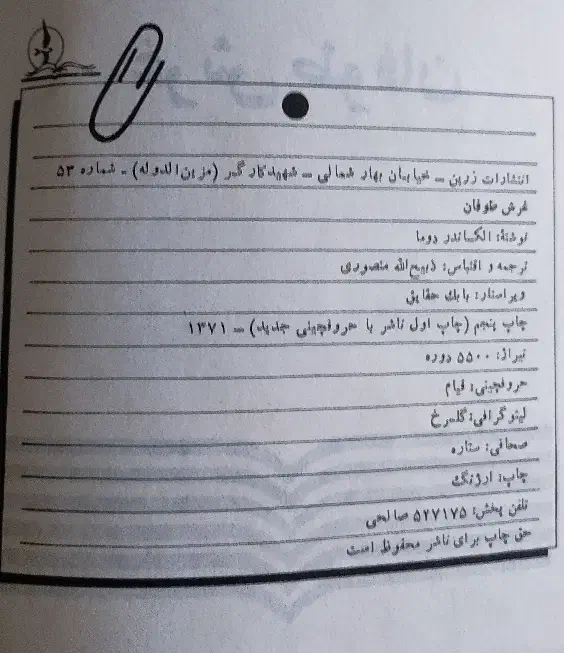 انتشارات زرین – خیابان بهار شمالی – شهید کارگر (مزین‌الدوله) – شماره ۵۳
غرش طوفان
نوشتهٔ: الکساندر دوما
ترجمه و اقتباس: ذبیح‌الله منصوری
ویراستار: بابك حقایق
چاپ پنجم (چاپ اول ناشر با حروفچینی جدید) – ۱۳۷۱
تیراژ: ۵۵۰۰ دوره
حروفچینی: قیام
لیتوگرافی: گلسرخ
صحافی: ستاره
چاپ: ارژنگ
تلفن پخش: ۵۲۷۱۷۵ صالحی
حق چاپ برای ناشر محفوظ است